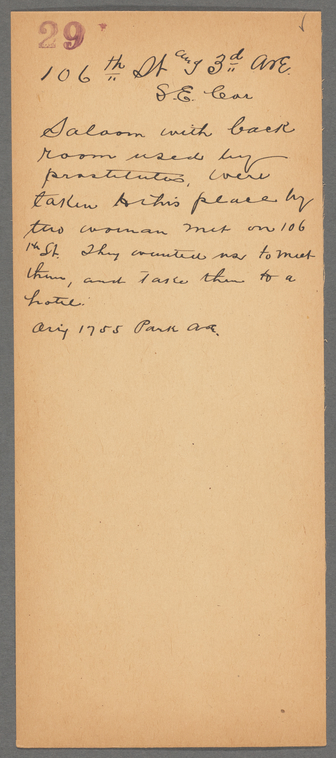 29
106 th St and 3rd Ave.
S.E. Cor
Saloom with back
room used by
prostitutes, were
taken to this place by
two woman met on 106
th St. They wanted us to meet
them, and take them to a
hotel.
1755 Park Ave.